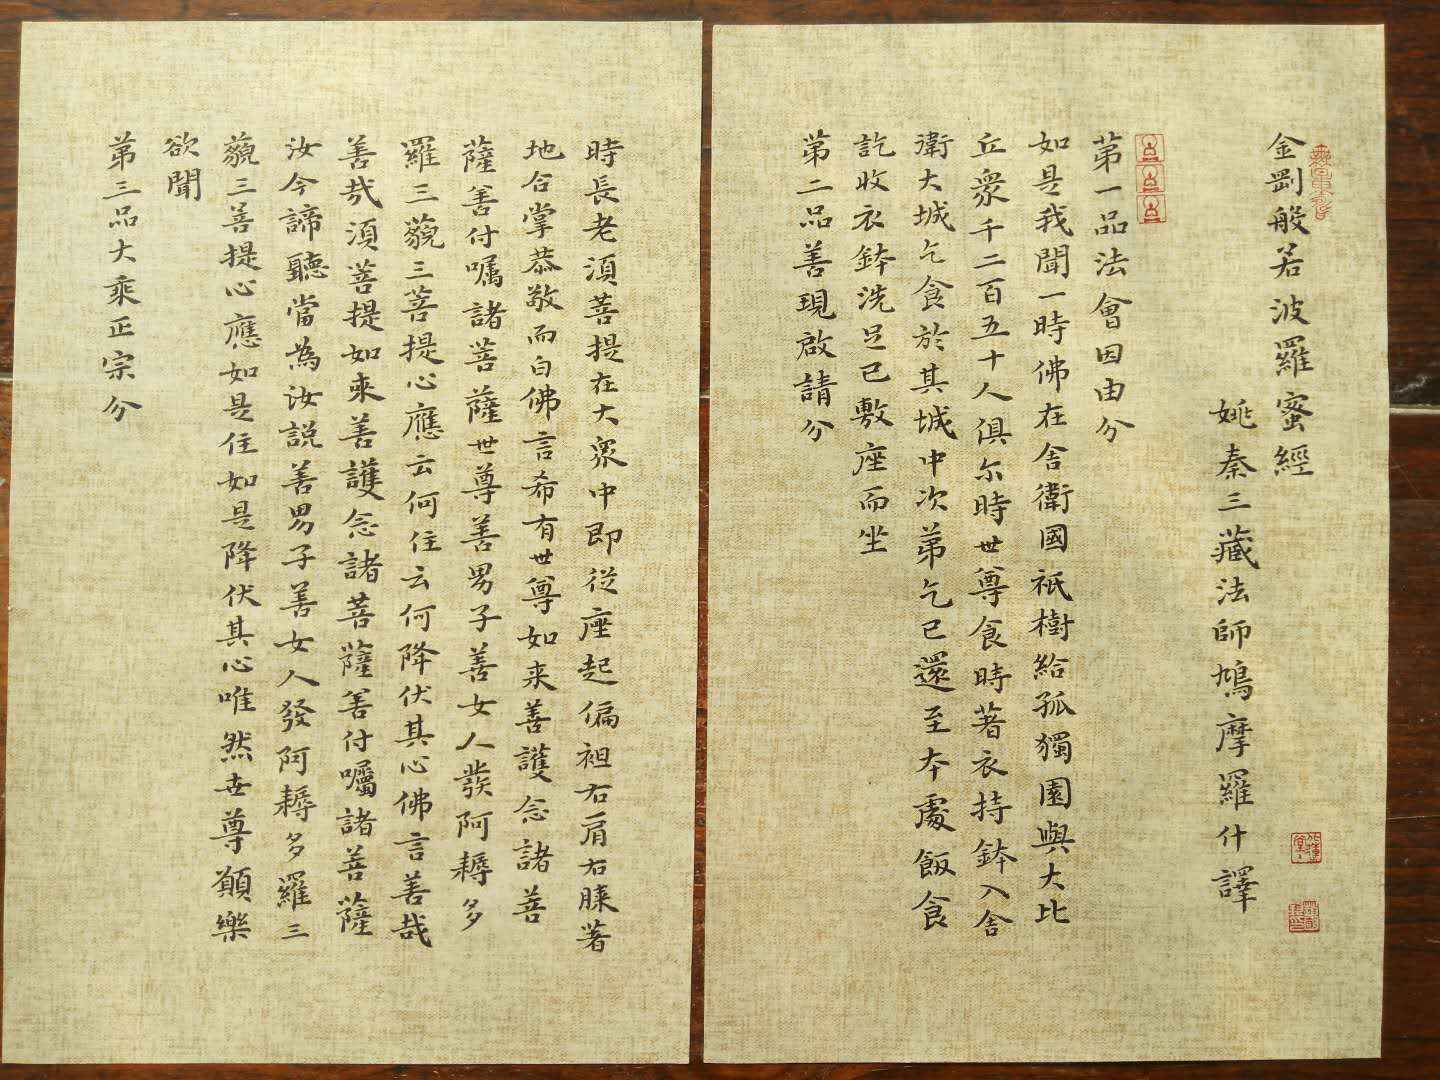 金剛般若波羅蜜經
姚秦三藏法師鳩摩羅什譯
第一品法會因由分
如是我聞一時佛在舎衛國祇樹給孤獨園與大比
丘衆千二百五十人俱尔時世尊食時著衣持鉢入舎
衛大城乞食於其城中次第乞已還至本處飯食
訖收衣鉢洗足已敷座而坐
第二品善現啟請分
時長老湏菩提在大衆中即從座起偏袒右肩右膝著
地合掌恭敬而白佛言希有世尊如来善護念諸菩
薩善付囑諸菩薩世尊善男子善女人發阿耨多
羅三藐三菩提心應云何住云何降伏其心佛言善哉
善哉湏菩提如来善護念諸菩薩善付囑諸菩薩
汝今諦聽當為汝説善男子善女人發阿耨多羅三
藐三菩提心應如是住如是降伏其心唯然世尊願樂
欲聞
第三品大乘正宗分